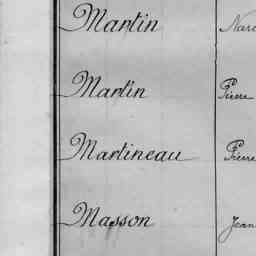 Martin Narc
Martin Pierre
Martineau Pierre
Masson Jean